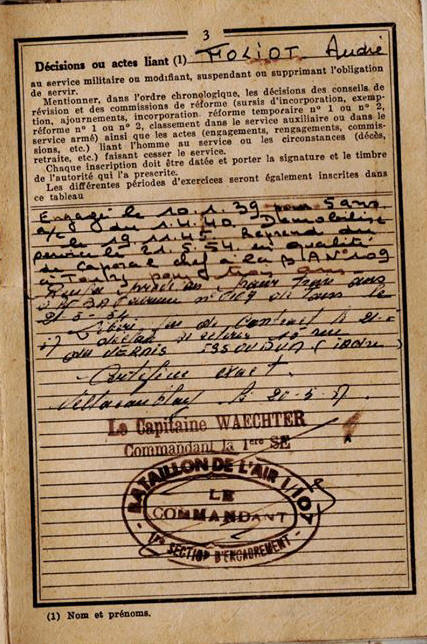 3
Décisions ou actes liant (1) FOLIOT André
au service militaire ou modifiant, suspendant ou supprimant l'obligation
de servir.
Mentionner, dans l'ordre chronologique, les décisions des conseils de
révision et des commissions de réforme (sursis d'incorporation, exemp-
tion, ajournements, incorporation, réforme temporaire n° 1 ou n° 2,
réforme n° 1 ou n° 2, classement dans le service auxiliaire ou dans le
service armé) ainsi que les actes (engagements, rengagements, commis-
sions, etc.) liant l'homme au service ou les circonstances (décès,
retraite, etc.) faisant cesser le service.
Chaque inscription doit être datée et porter la signature et le timbre
de l'autorité qui l'a prescrite.
Les différentes périodes d'exercices seront également inscrites dans
ce tableau
Engagé le 10.1.39 pour 5 ans
a/c du 1.4.40. Démobilisé
le 19.11.45. Reprend du
service le 21.5.54 en qualité
de Caporal chef à la BA N° 109
à Tours pour trois ans
pour trois ans
n° 109 le
21-5-54
de Contrat le 21-5
57
(indre)
Certifié exact
Villacoublay le 20-5-57.
Le Capitaine WAECHTER
Commandant la 1ere SE
BATAILLON DE L'AIR 1/107
LE
COMMANDANT
- 1re SECTION D'ENCADREMENT -
(1) Nom et prénoms.